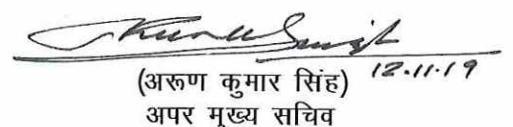 12.11.19
(अरूण कुमार सिंह)
अपर मुख्य सचिव